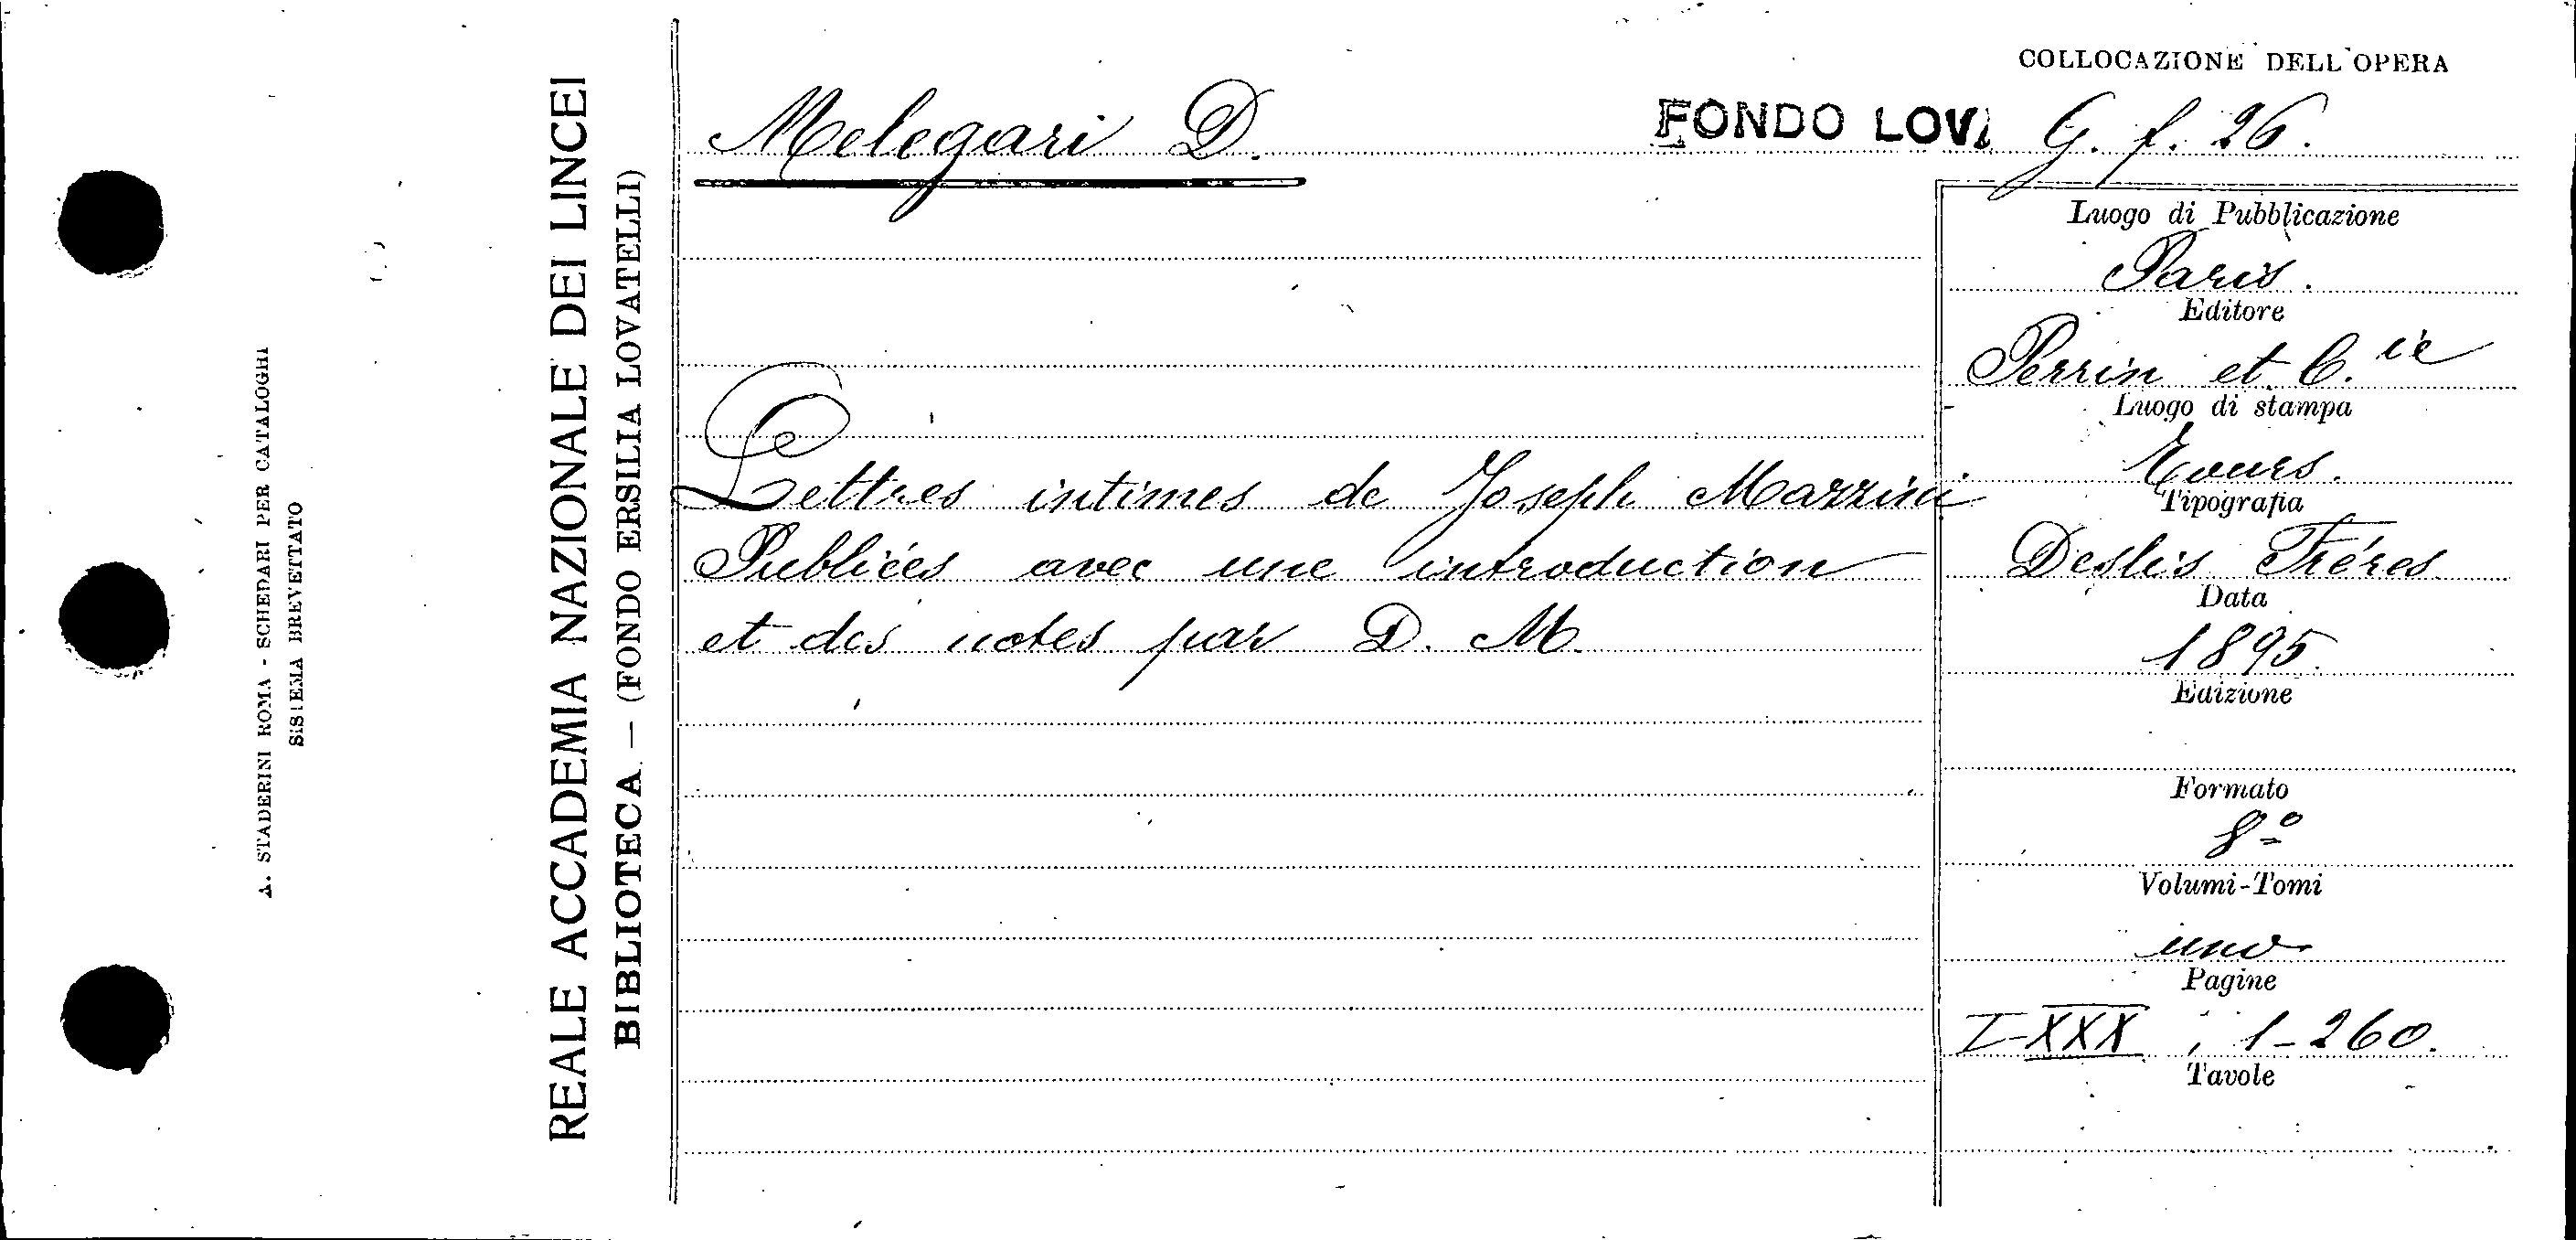 COLLOCAZIONE DELL'OPERA
Melegari D.
FONDO LOV. G. f. 26.
Lettres intimes de Joseph Mazzini
Publiées avec une introduction
et des notes par D. M.
Luogo di Pubblicazione
Paris.
Editore
Perrin et C.ie
Luogo di stampa
Tours.
Tipografia
Deslis Fréres
Data
1895.
Edizione
Formato
8º
Volumi-Tomi
uno
Pagine
I-XXX, 1-260.
Tavole
REALE ACCADEMIA NAZIONALE DEI LINCEI
BIBLIOTECA — (FONDO ERSILIA LOVATELLI)
A. STADERINI ROMA - SCHEDARI PER CATALOGHI
SISTEMA BREVETTATO